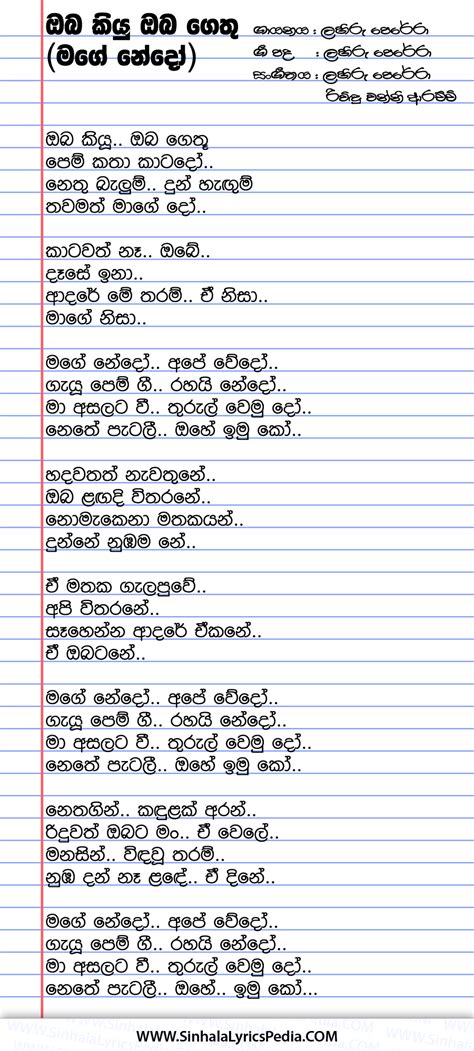 ඔබ කියු ඔබ ගෙතු
(මගේ නේදෝ)
ගායනය : ලහිරු පෙරේරා
ගී පද : ලහිරු පෙරේරා
සංගීතය : ලහිරු පෙරේරා
රිවිඳු වන්නි ආරච්චි
ඔබ කියූ.. ඔබ ගෙතූ
පෙම් කතා කාටදෝ..
නෙතු බැලුම්.. දුන් හැඟුම්
තවමත් මාගේ දෝ..
කාටවත් නෑ.. ඔබේ..
දෑසේ ඉනා..
ආදරේ මේ තරම්.. ඒ නිසා..
මාගේ නිසා..
මගේ නේදෝ.. අපේ වේදෝ..
ගැයූ පෙම් ගී.. රහයි නේදෝ..
මා අසලට වී.. තුරුල් වෙමු දෝ..
නෙතේ පැටලී.. ඔහේ ඉමු කෝ..
හදවතත් නැවතුනේ..
ඔබ ළඟදි විතරනේ..
නොමැකෙනා මතකයන්..
දුන්නේ නුඹම නේ..
ඒ මතක ගැලපුවේ..
අපි විතරනේ..
සෑහෙන්න ආදරේ ඒකනේ..
ඒ ඔබටනේ..
මගේ නේදෝ.. අපේ වේදෝ..
ගැයූ පෙම් ගී.. රහයි නේදෝ..
මා අසලට වී.. තුරුල් වෙමු දෝ..
නෙතේ පැටලී.. ඔහේ ඉමු කෝ..
නෙතගින්.. කඳුළක් අරන්..
රිදුවත් ඔබට මං.. ඒ වෙලේ..
මනසින්.. විඳවූ තරම්..
නුඹ දන් නෑ ළඳේ.. ඒ දිනේ..
මගේ නේදෝ.. අපේ වේදෝ..
ගැයූ පෙම් ගී.. රහයි නේදෝ..
මා අසලට වී.. තුරුල් වෙමු දෝ..
නෙතේ පැටලී.. ඔහේ.. ඉමු කෝ...
WWW.SinhalaLyricsPedia.COM